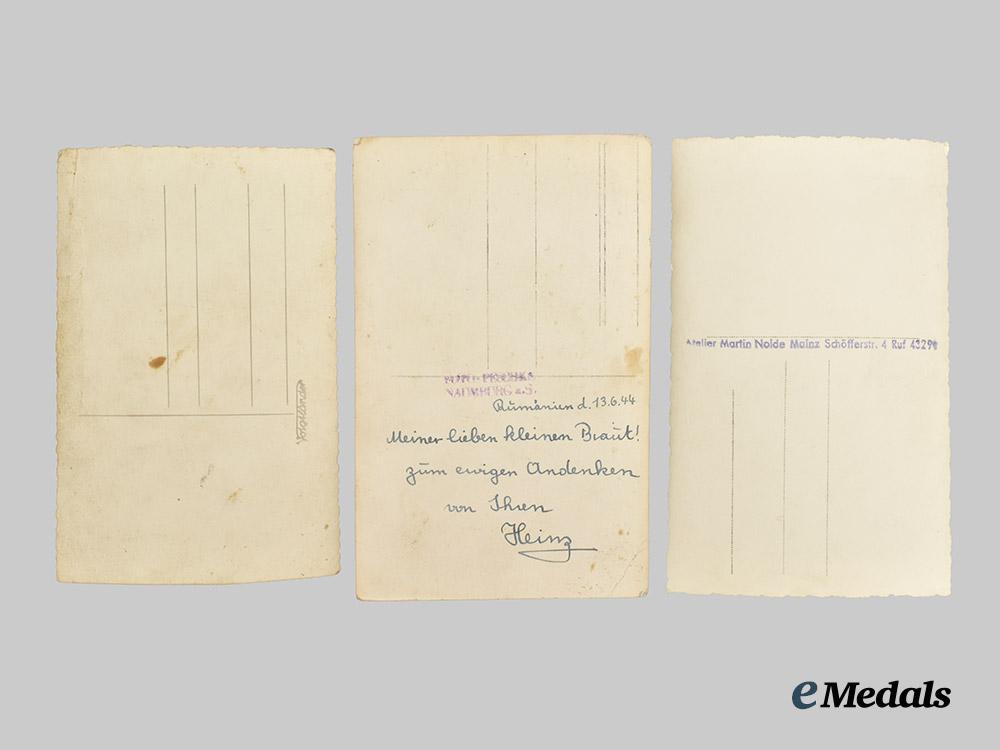 Voigtländer
NAUMBURG a.S.
Rumänien d. 13.6.44
Meiner lieben kleinen Braut!
zum ewigen Andenken
von Ihren
Heinz
Atelier Martin Nolde Mainz Schöfferstr. 4 Ruf 43291
eMedals